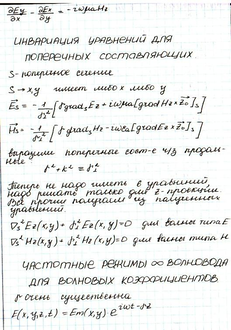 ∂Ey/∂x - ∂Ex/∂y = -iωμaHz
ИНВАРИАЦИЯ УРАВНЕНИЙ ДЛЯ
ПОПЕРЕЧНЫХ СОСТАВЛЯЮЩИХ
S - поперечное сечение
S → x,y либо x либо y
Es = -1/γ²[γ grads Ez + iωμa[grad Hz × z0]s]
Hs = -1/γ²[γ grads Hz - iωεa[grad Ez × z0]s]
выразили поперечные сост-е ч/з продоль-
ные
γ² + k² =
Теперь не надо уравнений
надо решать только для z-проекции
Все прочии получаем из
уравнений.
∇s² Ez(x,y) + Ez(x,y) = 0 для волны типа E
∇s² Hz(x,y) + Hz(x,y) = 0 для волны типа H
ЧАСТОТНЫЕ РЕЖИМЫ ∞ ВОЛНОВОДА
ДЛЯ ВОЛНОВЫХ КОЭФФИЦИЕНТОВ
γ очень существенна
E(x,y,z,t) = Em(x,y)·e^(iωt-γz)